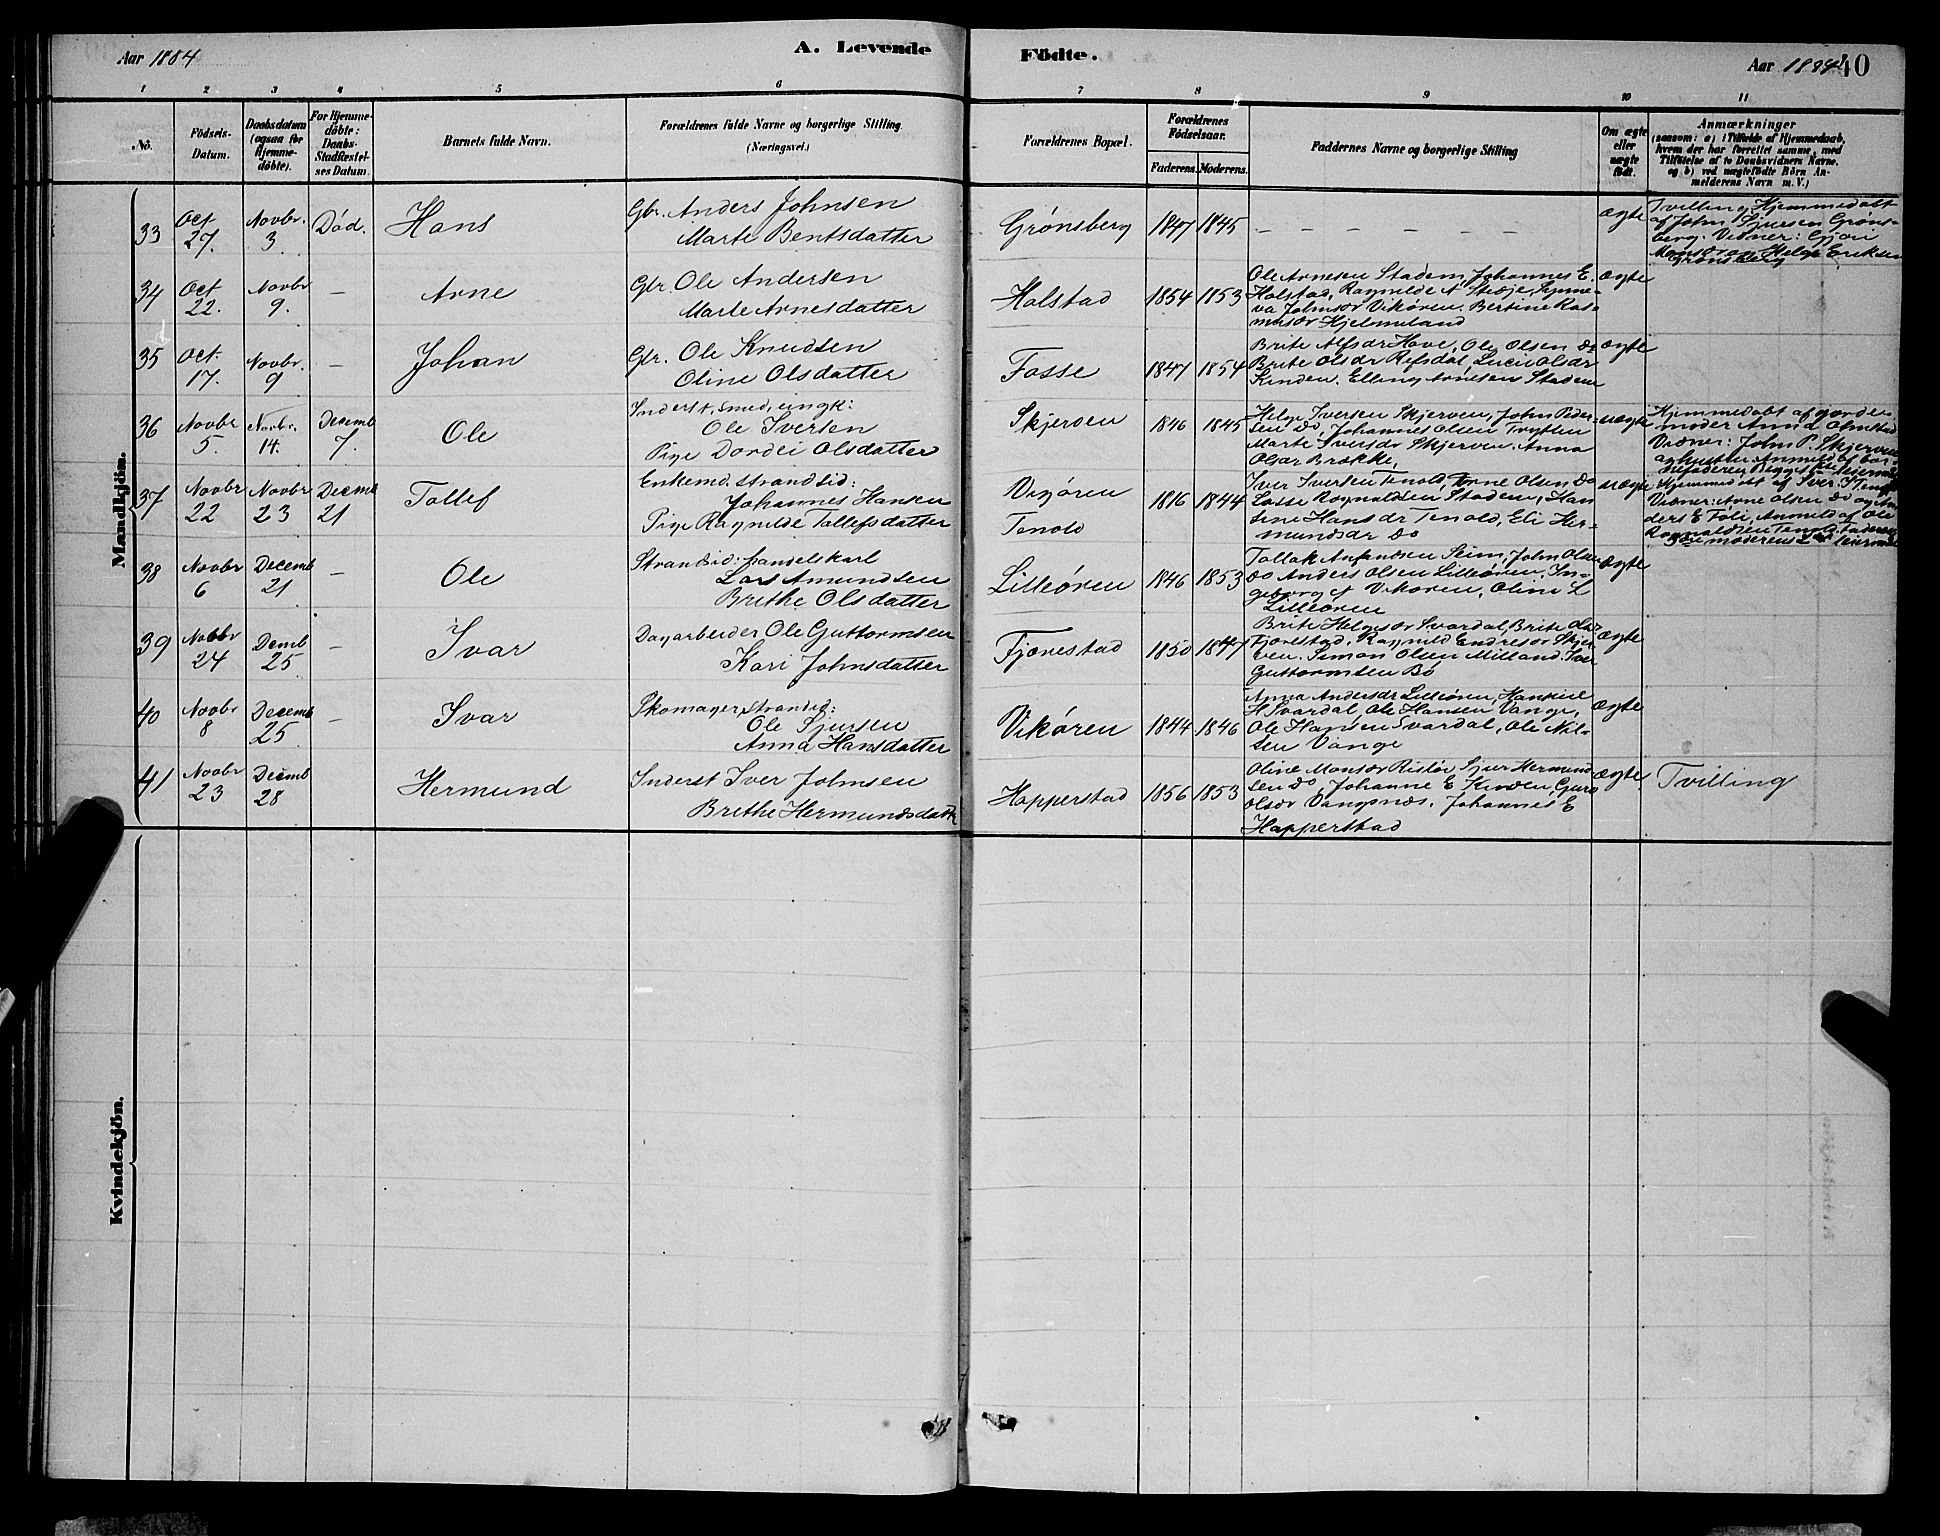 Aar 1884
A. Levende
Födte.
Aar 1884
40
1 2 3 4 5 6 7 8 9 10 11
No.
Födsels-
Datum.
Daabsdatum
(ogsaa for
Hjemme-
döbte).
For Hjemme-
döbte:
Daabs-
Stadfæstel-
ses Datum.
Barnets fulde Navn.
Forældrenes fulde Navne og borgerlige Stilling
(Næringsvei.)
Forældrenes Bopæl.
Forældrenes
Födselsaar.
Faderens. Moderens.
Faddernes Navne og borgerlige Stilling
Om ægte
eller
uægte
födt.
Anmærkninger
(saasom: a) i Tilfælde af Hjemmedaab,
hvem der har forrettet samme, med
Tilföielse af to Daabsvidners Navne.
og b) ved uægtefödte Börn An-
melderens Navn m. V.)
Mandkjön.
33
Oct
27.
Novbr.
3.
Död.
Hans
Gbr. Anders Johnsen
Marte Bentsdatter
Grønsberg
1847 1845
– – – – – –
ægte
Tvilling, Hjemmedøbt
af John Sjursen Grøns-
berg. Vidner: Gjøri
Monsdr og Helge Eriksen
Grønsberg
34
Oct
22.
Novbr
9.
–
Arne
Gbr. Ole Andersen
Marte Arnesdatter
Holstad
1854 1853
Ole Arnesen Stadem, Johannes E.
Holstad, Ragnilde A Steje, Synne-
va Johnsdr Vikøren. Bertine Ras-
musdr Hjelmeland
ægte
35
Oct.
17.
Novbr.
9
–
Johan
Gbr. Ole Knudsen
Oline Olsdatter
Fosse
1847 1854
Brite Alfsdr Hove, Ole Olsen Do
Brite Olsdr Refsdal, Lucie Olsdr
Kinden. Elling Arnesen Stadem
ægte
36
Novbr
5.
Novbr.
14.
Decemb
7.
Ole
Inderst, smed, ungk:
Ole Iversen
Pige Dordei Olsdatter
Skjerven
1846 1845
Helge Iversen Skjerven, John Peder-
sen Do, Johannes Olsen Tryften
Marte Iversdr Skjerven, Anna
Olsdr Brække.
uægte
Hjemmedøbt af gjorde-
moder Anna Olmstad
Vidner: John P. Skjerven
og hustru. Anmeldt af bar-
nefaderen Begges
37
Novbr
22
Novbr
23
Decemb
21
Tollef
Enkemd. strandsid:
Johannes Hansen
Pige Ragnilde Tollefsdatter
Vigøren
Tenold
1816 1844
Iver Iversen Tenold, Arne Olsen Do
Lasse Ragnaldsen Stadem, Han
sine Hansdr Tenold, Eli Her-
mundsdr Do
uægte
Hjemmedøbt af Iver I Tenold
Vidner: Arne Olsen Do og An-
ders E Føli, Anmeldt af Ole
Ragnaldsen Tenold. Faderens
moderens 2det leiermaal
38
Novbr
6
Decemb
21
–
Ole
Strandsid: handelskarl
Lars Amundsen
Brithe Olsdatter
Lilleøren
1846 1853
Tollak Amundsen Seim, John Olsen
Do Anders Olsen Lilleøren, In-
geborg et Vikøren, Oline L
Lilleøren
ægte
39
Novbr
24
Demb
25
–
Ivar
Dagarbeider Ole Guttormsen
Kari Johnsdatter
Fjørestad
1850 1847
Brite Helgesdr Svardal, Brite Olsdr
Fjørestad. Ragnild Endresdr Skjer-
ven. Simon Olsen Milland. Iver
Guttormsen Bø
ægte
40
Novbr
8
Decemb
25
–
Ivar
Skomager, strandsid:
Ole Sjursen
Anna Hansdatter
Vikøren
1844 1846
Anna Andersdr Lilleøren, Hankiel
H Svardal, Ole Hansen Vange,
Ole Hansen Svardal, Ole Nil-
sen Vange
ægte
41
Novbr
23
Decemb
28
Hermund
Inderst Iver Johnsen
Brithe Hermundsdattr
Hopperstad
1856 1853
Oline Monsdr Risløv Sjur Hermund
sen Do, Johanne E Kinden, Guro
Olsdr Vangsnæs, Johannes E
Hopperstad
ægte
Tvilling
Kvindekjön.